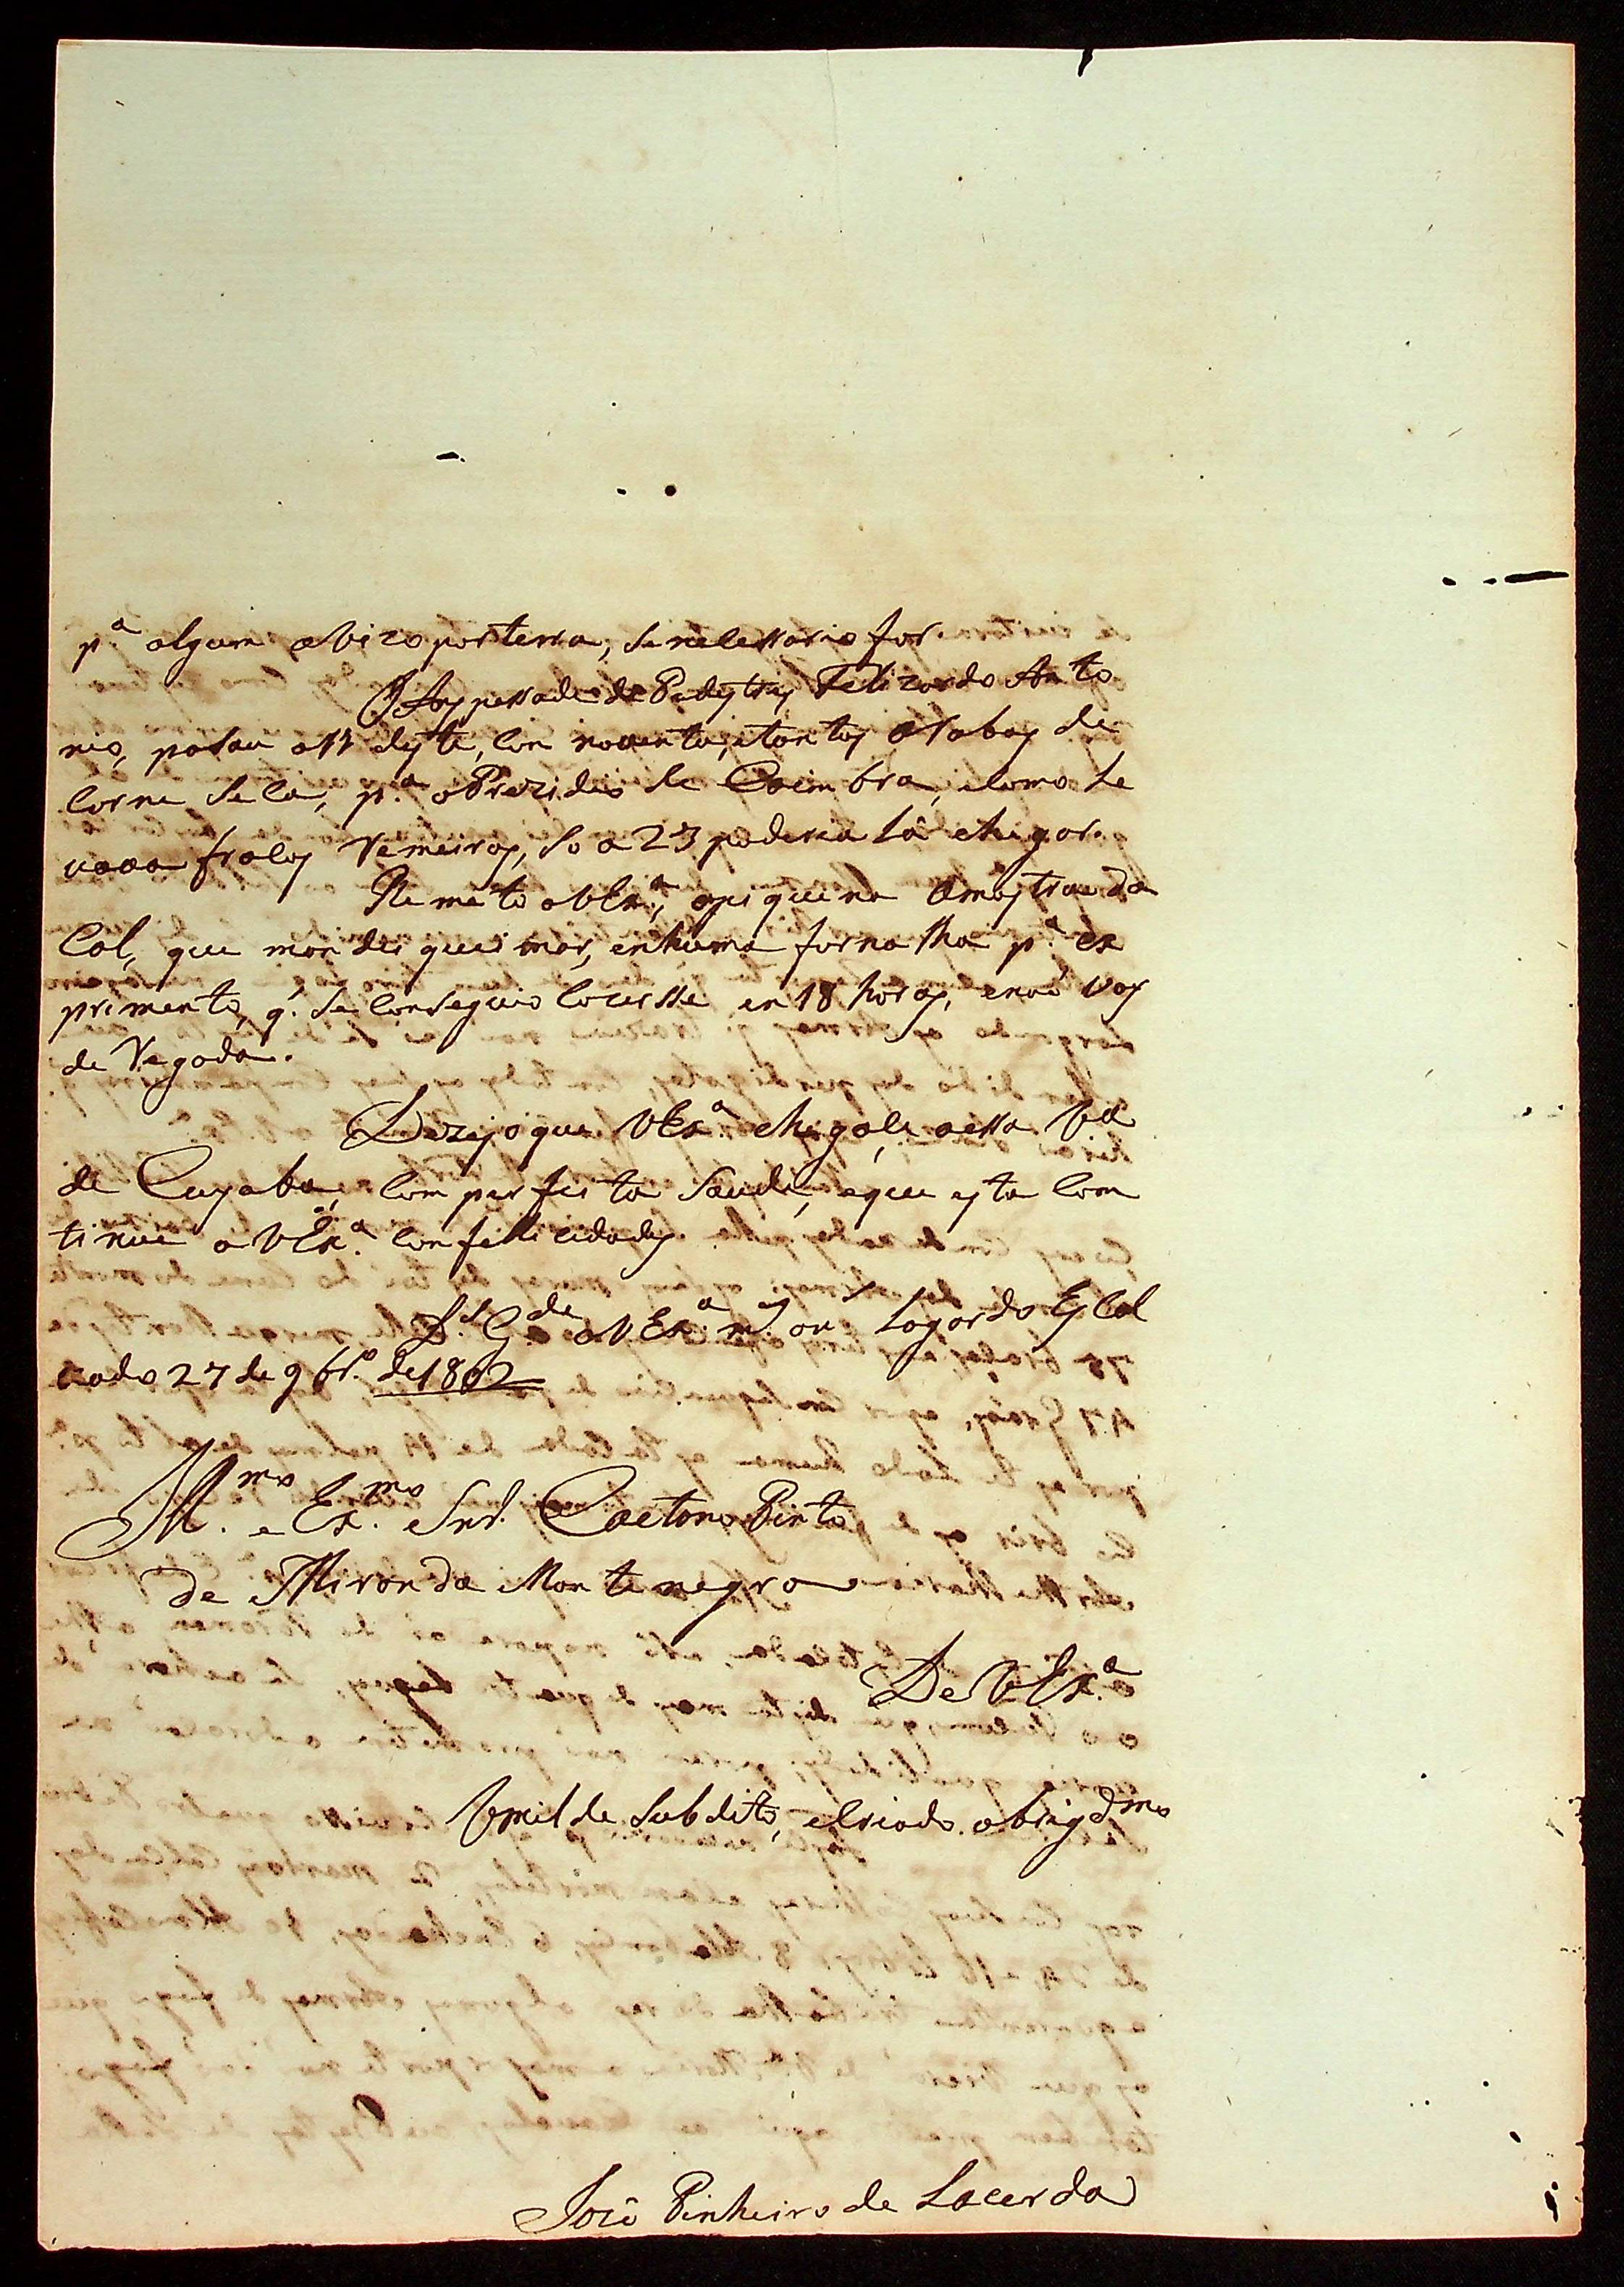 p.ª algum avizo por terra, se nelessario for.
O Anspessade de Pedestres Felizardo Anto
nio, pasou a 17 deste, com noventa, e tantas arobas de
Corne Seca, p.ª o Prezidio de Coimbra, e Como le
vava fracos Remeiros, so a 23 poderia lá chegar.
Remeto a VEx.ª, a piquena amostra da
Cal, que mandei queimar, en huma fornalha p.ª ex
primento, q' se Conseguio Cocersse en 18 horas, e naó vay
de Regada.
Dezejo que VEx.ª chegase a essa Va
de Cuyaba, Com perfeita Saude, e que esta Com
tinue a VEx.ª Con felicidades.
D.s G.de a VEx.ª m.s an.s Logar do Escal
vado 27 de 9br.º de 1802
Ill.mo e Ex.mo Snr. Caetano Pinto
de Miranda Montenegro
De VEx.ª
Umilde Subdito, e Criado obrigd.mo
José Pinheiro de Lacerda